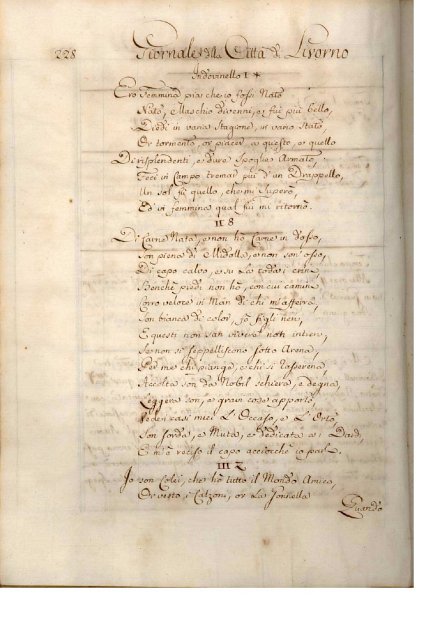 228 Giornale della Città di Livorno
Indovinello I
Ero Femmina pria che io fossi Nato
Nato, Maschio divenni, e fui più bello,
Diedi in vario Stagione, in vario Stato,
Or tormento, or piacer a questo, e quello
Di risplendenti, e dure Spoglie Armato,
Feci in Campo tremar più d'un Drappello,
Un sol fu quello, che mi Superò,
Ed in femmina qual fui mi ritornò.
II 8
Di Carne Nata, e non ho Carne in dosso,
Son piena di Midolla, e non son osso,
Di capo calvo, e su la coda i crini
Benchè piedi non ho, con cui camina
Corro veloce in Man di chi m'afferra,
Son bianca di color, fò figli neri,
E questi non san vivere
Se non si seppelliscono sotto Arena,
Per me chi piange, e chi si rasserena,
Accolta son da Nobil schiera, e degna,
Leggiera son, e gran cose apporto,
miei L'Occaso, e L'Orto
Son Sorda, e Muta, e dedicata ai
E mi è reciso il capo acciocchè io parli.
III 2
Io son Colei, che hò tutto il Mondo Amico,
Or vesto i Calzoni, or La Gonnella
Quando